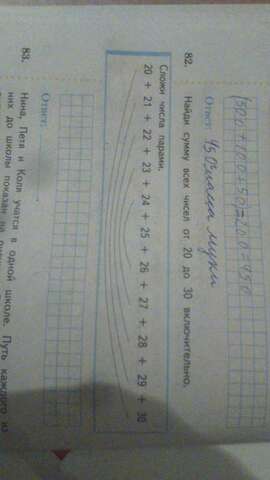 (500+100+50)-200=450
Ответ: 450 масса муки
82. Найди сумму всех чисел от 20 до 30 включительно.
Сложи числа парами.
20 + 21 + 22 + 23 + 24 + 25 + 26 + 27 + 28 + 29 + 30
Ответ:
83. Нина, Петя и Коля учатся в одной школе. Путь каждого из
них до школы показан на